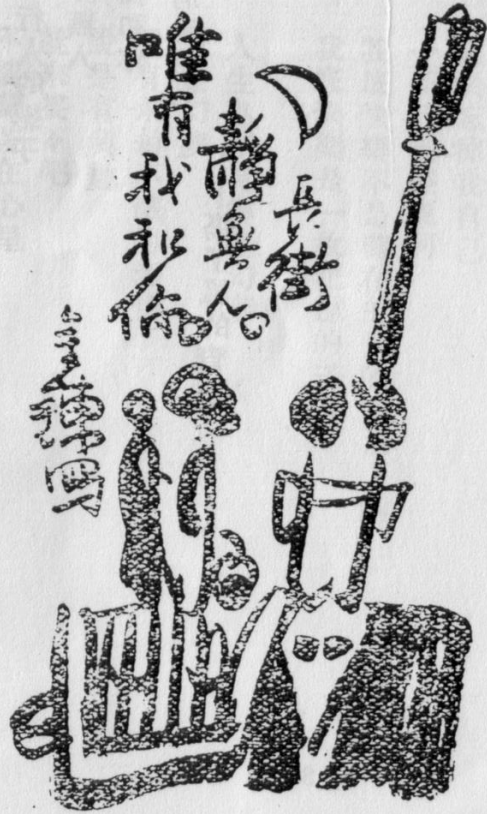 長街
靜無人
唯有我和你